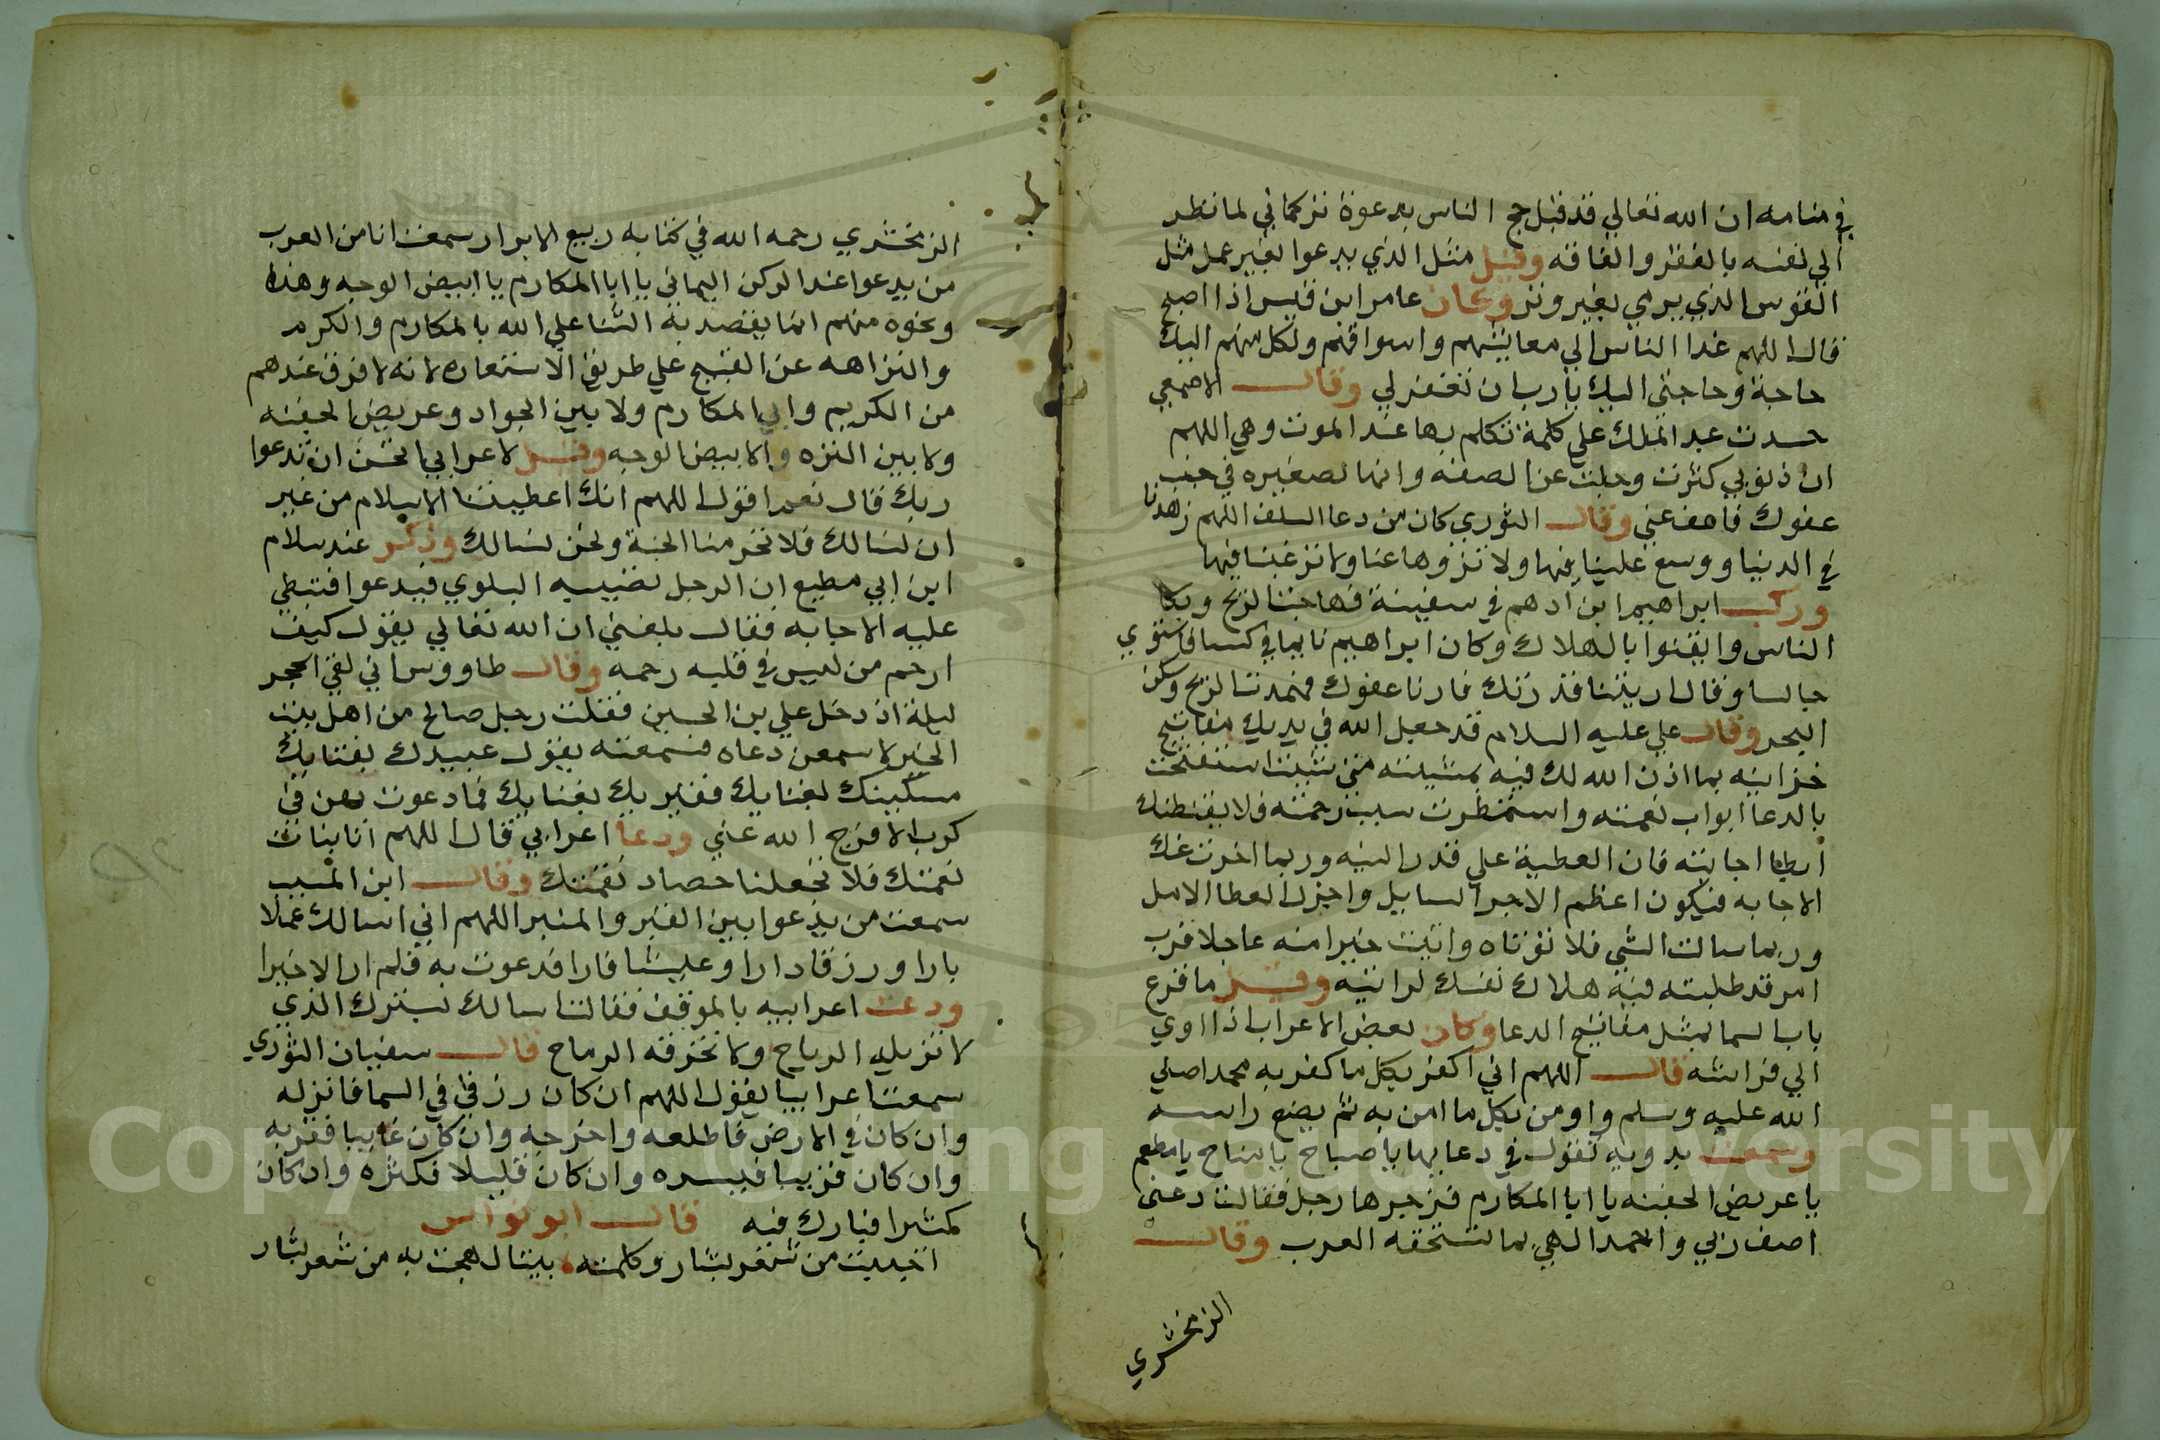 في منامه ان الله تعالي قد قبل حج الناس بدعوة تركماني لما نظر
الي نفسه بالفقر والفاقه وقيل مثل الذي يدعوا بغير عمل مثل
القوس الذي يرمي بغير وتر وكان عامر ابن قيس اذا اصبح
قال اللهم غدا الناس الي معايشهم واسواقهم ولكل منهم اليك
حاجة وحاجتى اليك يارب ان تغفر لي وقال الاصمعي
حسدت عبد الملك علي كلمة تكلم بها عند الموت وهي اللهم
ان ذنوبي كثرت وجلت عن الصفه وانها لصغيره في جنب
عفوك فاعف عني وقال الثوري كان من دعا السلف اللهم زهدنا
في الدنيا ووسع علينا فيها ولا تزوها عنا ولا ترغبنا فيها
وركب ابراهيم ابن ادهم في سفينة فهاجت الريح وبكا
الناس وايقنوا بالهلاك وكان ابراهيم نايما في كسا فاستوي
جالسا وقال اريتنا قدرتك فارنا عفوك فخمدت الريح وسكن
البحر وقال علي عليه السلام قد جعل الله في يديك مفاتيح
خزاينه بما اذن الله لك فيه بمشيئته متى شيت استفتحت
بالدعا ابواب نعمته واستمطرت سيب رحمته فلا يقنطنك
ابطا اجابته فان العطية علي قدر النيه وربما اخرت عنك
الاجابه فيكون اعظم الاجر السايل واجزل العطا الامل
وربما سالت الشي فلا توتاه واتيت خيرا منه عاجلا فرب
امر قد طلبته فيه هلاك نفسك لو اتيه وقيل ما قرع
باب السما بمثل مفاتيح الدعا وكان بعض الاعراب اذا اوي
الي فراشه قال اللهم اني اكفر بكل ما كفر به محمد اصلي
الله عليه وسلم واومن بكل ما امن به ثم يضع راسه
وسمعت بدويه تقول في دعايها يا صباح يا مناح يا مطعم
يا عريض الجفنه يا ابا المكارم فزجرها رجل فقالت دعنى
اصف ربي واحمد الهي بما تستحقه العرب وقال
الزمخشري
الزمخشري رحمه الله في كتابه ربيع الابرار سمعت انا من العرب
من يدعوا عند الركن اليماني يا ابا المكارم يا ابيض الوجه وهذا
ونحوه منهم انما يقصد به الثنا علي الله بالمكارم والكرم
والنزاهه عن القبيح علي طريق الاستعاره لانه لا فرق عندهم
من الكريم وابي المكارم ولا بين الجواد وعريض الجفنه
ولا بين النزه والابيض الوجه وقيل لاعرابي اتحسن ان تدعوا
ربك قال نعم اقول اللهم انك اعطيتنا الاسلام من غير
ان نسالك فلا تحرمنا الجنة ونحن نسالك وذكر عند سلام
ابن ابي مطيع ان الرجل تصيبه البلوي فيدعوا فتبطي
عليه الاجابه فقال بلغني ان الله تعالي يقول كيف
ارحم من ليس في قلبه رحمه وقال طاووس اني لفي الحجر
ليلة اذ دخل علي بن الحسين فقلت رجل صالح من اهل بيت
الخير لاسمعن دعاه فسمعته يقول عبيدك بفنايك
مسكينك بفنايك فقيرك بفنايك فما دعوت بهن في
كرب الا فرج الله عني ودعا اعرابي قال اللهم انا بنات
نعمتك فلا تجعلنا حصاد نقمتك وقال ابن المسيب
سمعت من يدعوا بين القبر والمنبر اللهم اني اسالك عملا
بارا ورزقا دارا وعليشا قارا فدعوت به فلم ار الا خيرا
ودعت اعرابيه بالموقف فقالت اسالك بسترك الذي
لا تزيله الرياح ولا تخرقه الرماح قال سفيان الثوري
سمعت اعرابيا يقول اللهم ان كان رزقي في السما فانزله
وان كان في الارض فاطلعه واخرجه وان كان غايبا فقربه
وان كان قريبا فيسره وان كان قليلا فكثره وان كان
كثيرا فبارك فيه قال ابو نواس
احببت من شعر بشار وكلمته بيتا لهجت به من شعر بشار